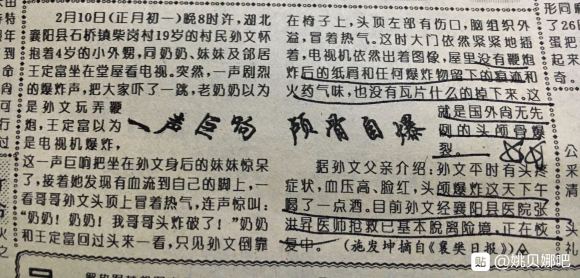 2月10日(正月初一)晚8时许,湖北
襄阳县石桥镇柴岗村19岁的村民孙文怀
抱着4岁的小外甥,同奶奶、妹妹及邻居
王定富坐在堂屋看电视。突然,一声剧烈
的爆炸声,把大家吓了一跳,老奶奶以为
是孙文玩弄鞭
炮,王定富以为
是电视机爆炸,
一声巨响 颅骨自爆
这一声巨响把坐在孙文身后的妹妹惊呆
了,接着她发现有血流到自己的脚上,一
看哥哥孙文头顶上冒着热气,连声惊叫:
“奶奶!奶奶!我哥哥头炸破了!”奶奶
和王定富回过头来一看,只见孙文倒靠
在椅子上,头顶左部有伤口,脑组织外
溢,冒着热气。这时大门依然紧紧地插
着,电视机依然出着图像,屋里没有鞭炮
炸后的纸屑和任何爆炸物留下的痕迹和
火药气味,也没有瓦片什么的掉下来。这
就是国外尚无先
例的头颅骨爆
裂。
据孙文父亲介绍:孙文平时有头疼
症状,血压高、脸红,头颅爆炸这天下午
喝了一点酒。目前孙文经襄阳县医院张
洪昇医师抢救已基本脱离险境,正在恢
复中。(施发坤摘自《襄樊日报》)
形同
了26
蛋把
起来
奇。
公
采
清
贴 @姚贝娜吧